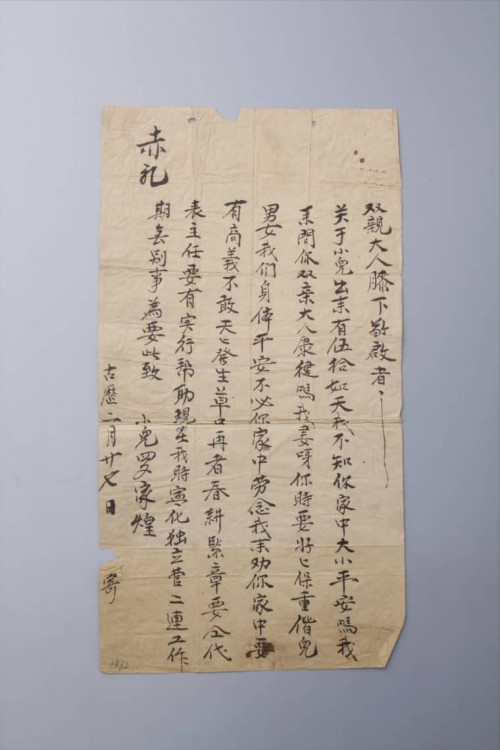 双親大人膝下敬啟者
关于小兒出来有伍拾如天我不知你家中大小平安嗎我
来問你双亲大人康健嗎我妻呀你時要好〻保重偕兒
男女我们身体平安不必你家中劳念我来劝你家中要
有商義不敢天〻發生草口再者春耕緊章要仝代
表主任要有实行帮助現在我時宣化独立营二連工作
期無別事為要此致
赤礼
小兒 家煌
古歷二月廿七日
寄
1332